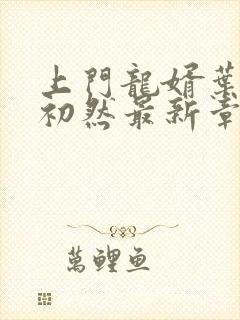 上門龍婿葉
初然最新章
萬鯉魚